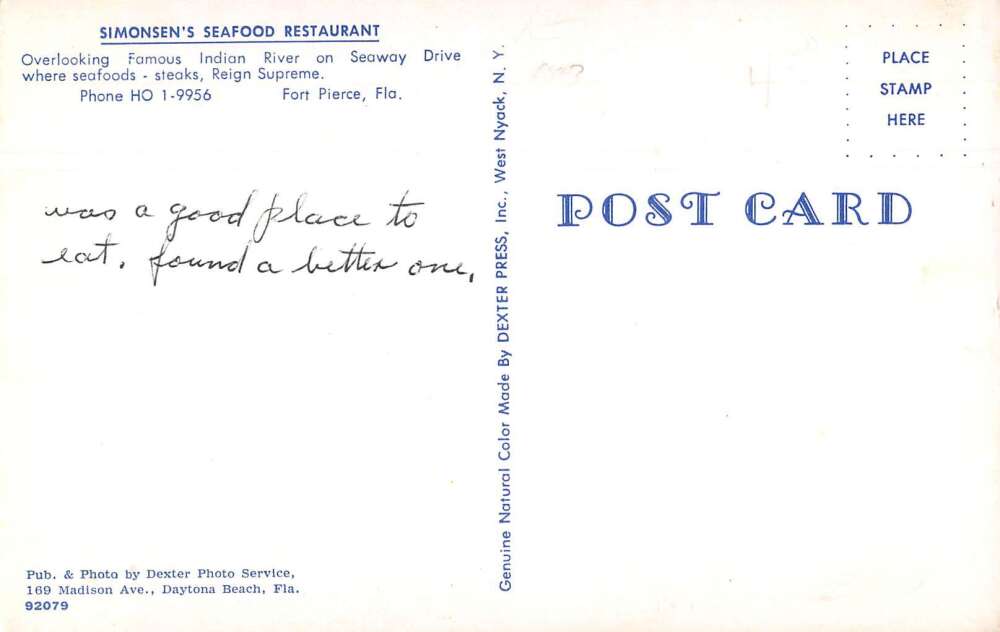 SIMONSEN'S SEAFOOD RESTAURANT
Overlooking Famous Indian River on Seaway Drive
where seafoods - steaks, Reign Supreme.
Phone HO 1-9956 Fort Pierce, Fla.
was a good place to
eat. found a better one.
Pub. & Photo by Dexter Photo Service,
169 Madison Ave., Daytona Beach, Fla.
92079
Genuine Natural Color Made By DEXTER PRESS, Inc., West Nyack, N. Y.
PLACE
STAMP
HERE
POST CARD
4